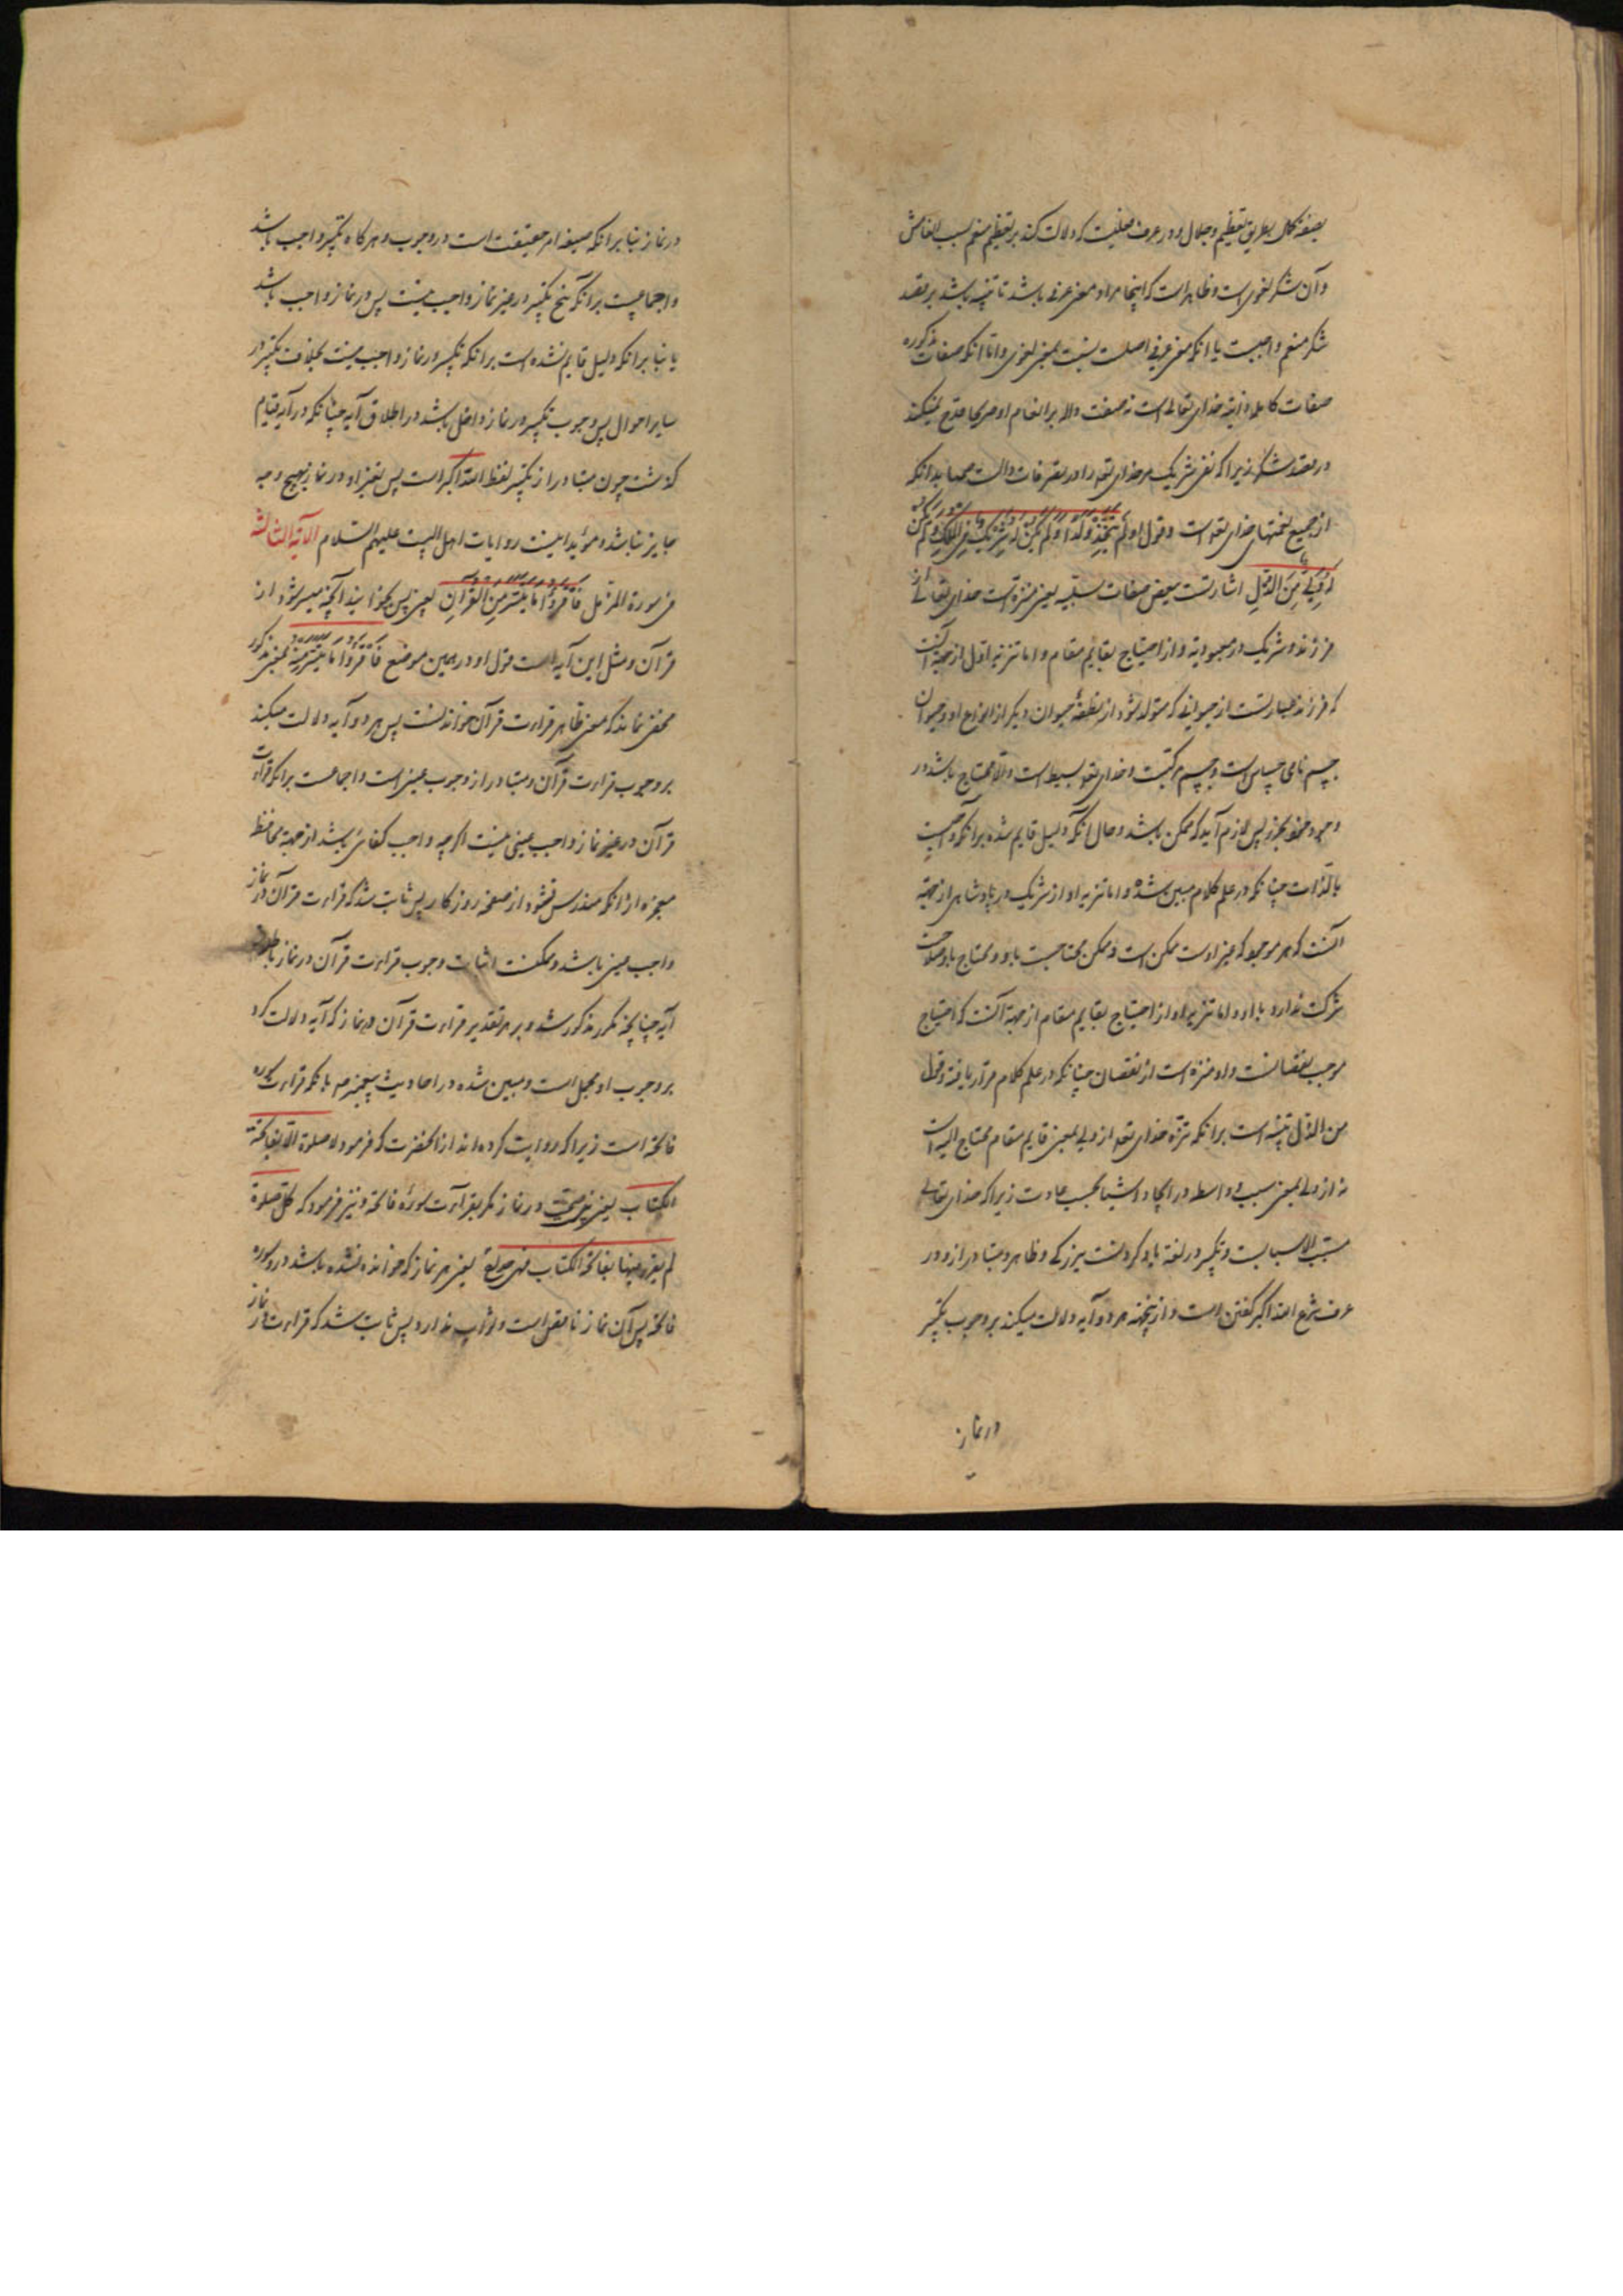 بصفة کمال بطریق تعظیم و جلال و در عرف فعلیست که دلالت کند بر تعظیم منعم بسبب انعامش
و آن شکر لغوی است و ظاهر است که اینجا مراد معنی عرفی باشد تا تنبیه باشد بر عقد
شکر منعم واجبست یا آنکه معنی عرفی اصلست بنسبت بمعنی لغوی و اما آنکه صفات مذکوره
صفات کامله ذاتیه خدای تعالی است نه صفت داله بر انعام او صریحا قدح نمیکند
در عقد شکر زیرا که نفی شریک مر خدای تعالی را در تصرفات دالست بدانکه
از جمیع نعمتهای خدای تعالی است و قول او لم یتخذ ولدا و لم یکن له شریک فی الملک و لم یکن
له ولی من الذل اشارتست ببعض صفات سلبیه یعنی منزه است خدای تعالی از
فرزند و شریک در معبودیة و از احتیاج بقایم مقام و اما تنزیه اول از جهة آنست
که فرزند عبارتست از حیوانی که متولد شود از نطفهٔ حیوان دیگر از انواع او و حیوان
جسم نامی حساس است و جسم مرکبست و خدای تعالی بسیط است والا محتاج باشد در
وجود خود بجزو پس لازم آید که ممکن باشد و حال آنکه دلیل قایم شده بر آنکه واجبست
بالذات چنانکه در علم کلام مبین شده و اما تنزیه او از شریک در پادشاهی از جهة
آنست که هر موجود که غیر اوست ممکن است و ممکن محتاجست باو و محتاج باو صلاحیت
شرکت ندارد با او و اما تنزیه او از احتیاج بقایم مقام از جهة آنست که احتیاج
موجب نقصانست و او منزه است از نقصان چنانکه در علم کلام قرار یافته و قول
من الذل تنبیه است بر آنکه تنزه خدای تعالی از ولی بمعنی قایم مقام محتاج الیه است
نه از ولی بمعنی سبب و واسطه در ایجاد اشیا بحسب عادت زیرا که خدای تعالی
مسبب الاسبابست و تکبیر در لغة یاد کردنست ببزرکی و ظاهر و متبادر ازو در
عرف شرع الله اکبر کفتن است و از اینجهة هر دو آیه دلالت میکند بر وجوب تکبیر
در نماز
در نماز بنا بر آنکه صیغه امر حقیقت است در وجوب و هر کاه تکبیر واجب باشد
و اجماعیست بر آنکه هیچ تکبیر در غیر نماز واجب نیست پس در نماز واجب باشد
یا بنا بر آنکه دلیل قایم نشده است بر آنکه تکبیر در نماز واجب نیست بخلاف تکبیر در
سایر احوال پس وجوب تکبیر در نماز داخل باشد در اطلاق آیه چنانکه در آیه قیام
کذشت چون متبادر از تکبیر لفظ الله اکبر است پس بغیر او در نماز بهیچ وجه
جایز نباشد و مؤید اینست روایات اهل البیت علیهم السلام الآیة الثالثة
فی سورة المزمل فاقرؤا ما تیسر من القرآن یعنی پس بخوانید آنچه میسر شود از
قرآن و مثل این آیه است قول او در همین موضع فاقرؤا ما تیسر منه بمعنی مذکور
مخفی نماند که معنی ظاهر قراءت قرآن خواندنست پس هر دو آیه دلالت میکند
بر وجوب قراءت قرآن و متبادر از وجوب عینی است و اجماعست بر آنکه قراءت
قرآن در غیر نماز واجب عینی نیست اکر چه واجب کفائی باشد از جهة محافظت
معجزه از آنکه مندرس نشود از صفحه روزکار پس ثابت شد که قراءت قرآن در نماز
واجب عینی باشد و ممکنست اثبات وجوب قراءت قرآن در نماز باطلاق
آیه چنانچه مکرر مذکور شد و بر هر تقدیر قراءت قرآن در نماز که آیه دلالت کرد
بر وجوب او مجمل است و مبین شده در احادیث پیغمبر ص بآنکه قراءت سوره
فاتحه است زیرا که روایت کرده‌اند از آنحضرت که فرمود لا صلوة الا بفاتحة
الکتاب یعنی نیست در نماز مکر بقراءت سورهٔ فاتحه و نیز فرمود که کل صلوة
لم یقرء فیها بفاتحة الکتاب فهی خداج یعنی هر نماز که خوانده نشده باشد درو سوره
فاتحه پس آن نماز ناقص است و ثواب ندارد پس ثابت شد که قراءت در نماز